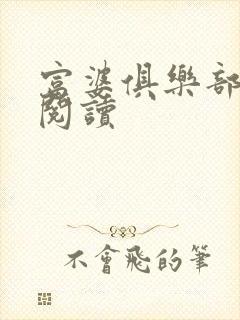 富婆俱樂部
閱讀
不會飛的筆